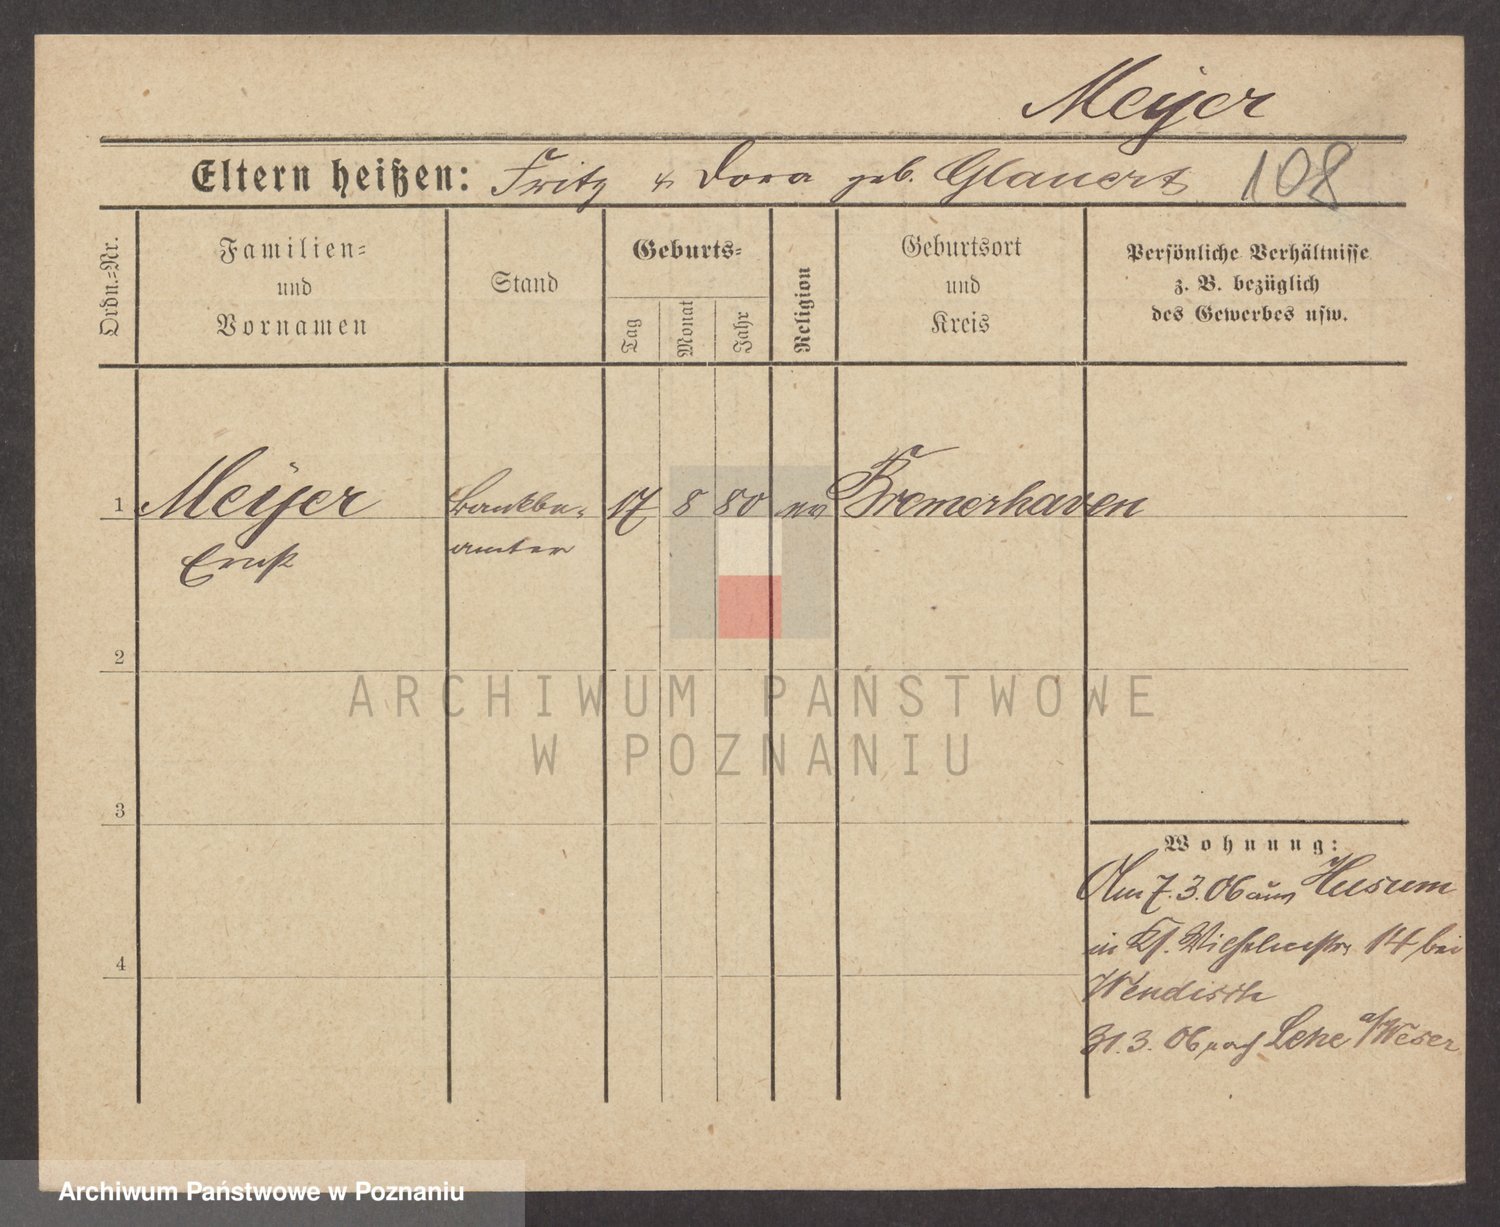 Meyer
Eltern heißen: Fritz & Dora geb. Glauert 108
Ordn.=Nr.
Familien=
und
Vornamen
Stand
Geburts=
Tag
Monat
Jahr
Religion
Geburtsort
und
Kreis
Persönliche Verhältnisse
z. B. bezüglich
des Gewerbes usw.
1 Meyer Bankbe- 17 8 80 ev Bremerhaven
Ernst amter
2
ARCHIWUM PAŃSTWOWE
W POZNANIU
3
Wohnung:
Am 7.3.06 aus Husum
4
in Wilhelmstr 14 bei
Wendisch
31.3.06 nach Lehe a/Weser
Archiwum Państwowe w Poznaniu